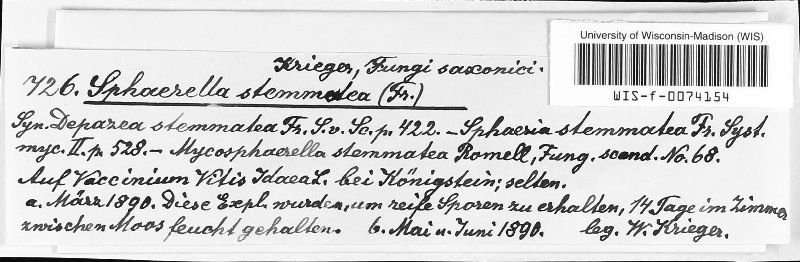 University of Wisconsin-Madison (WIS)
WIS-f-0074154
Krieger, Fungi saxonici.
726. Sphaerella stemmatea (Fr.)
Syn. Depazea stemmatea Fr. S. v. Sc. p. 422. – Sphaeria stemmatea Fr. Syst.
myc. II. p. 528. – Mycosphaerella stemmatea Romell, Fung. scand. No. 68.
Auf Vaccinium Vitis Idaea L. bei Königstein; selten.
a. März 1890. Diese Expl. wurden, um reife Sporen zu erhalten, 14 Tage im Zimmer
zwischen Moos feucht gehalten. b. Mai u. Juni 1890. leg. W. Krieger.